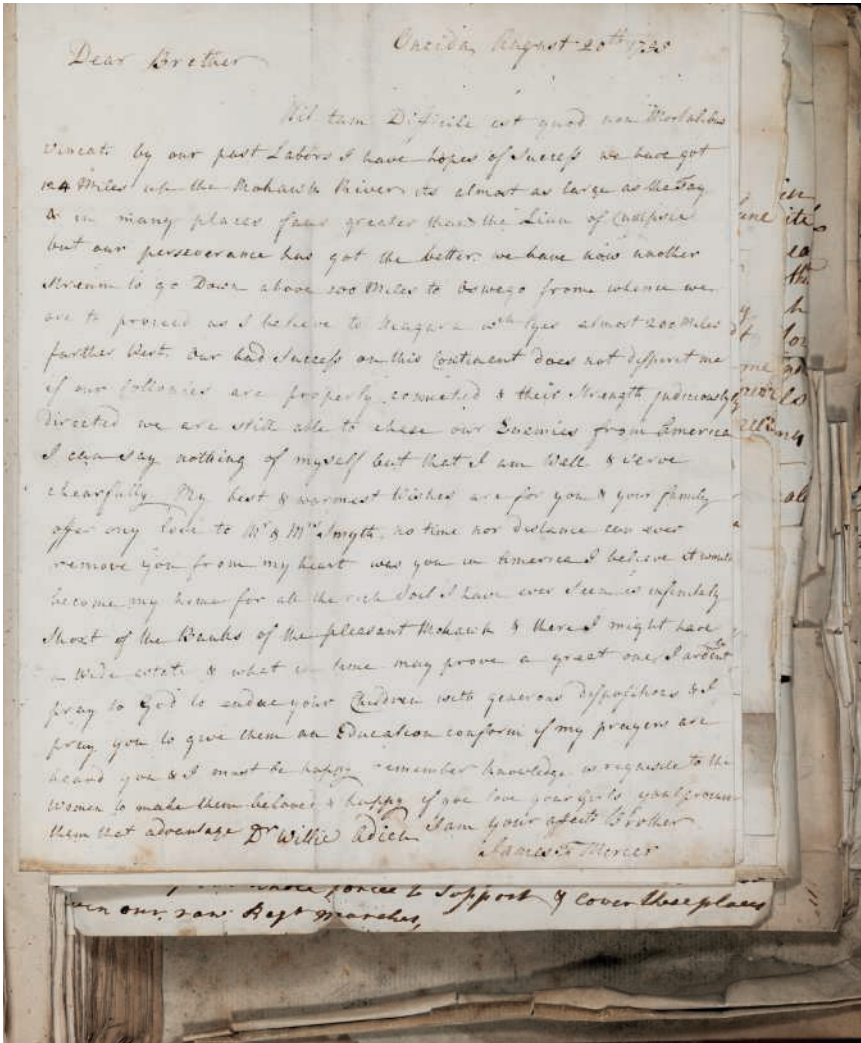 Oneida August 20th
Dear Brother
Nil tam Difficile est quod non Mortalibus
by our past Labors I have hopes of Success we have got
124 Miles up the Mohawk River its almost as large as the Tay
& in many places farr greater than the Linn of
but our perseverance has got the better. we have now another
Stream to go Down above 100 Miles to Oswego from whence we
are to proceed as I believe to Neagara wch lyes almost 200 Miles
further West. Our bad Success on this Continent does not dispirit me
if our Collonies are properly connected & their Strength judiciously
directed we are still able to chese our Enemies from America
I can say nothing of myself but that I am Well & Serve
chearfully My best & warmest Wishes are for you & your family
offer my Love to Mr & Mrs Smyth. no time nor distance can ever
remove you from my heart was you in America I believe it would
become my home for all the rich Soil I have ever Seen is infinitely
Short of the Banks of the pleasant Mohawk & there I might have
a Wide estate & what in time may prove a great one, I
pray to God to endue your Children with generous dispositions & I
pray you to give them an Education conform if my prayers are
heard you & I must be happy remember knowledge is requisite to the
Women to make them beloved & happy if you love your Girls youl procure
them that advantage Dr Willie Adieu I am your affectt Brother
James Fr Mercer
to Support & cover these places
our raw Regt marches,